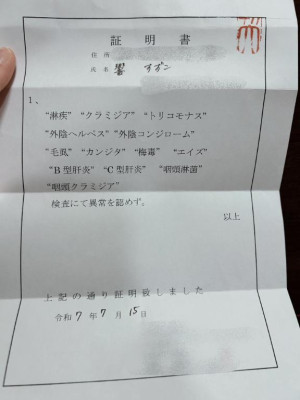 証明書
住所
氏名 響 すずこ
1、
“淋疾” “クラミジア” “トリコモナス”
“外陰ヘルペス” “外陰コンジローム”
“毛虱” “カンジタ” “梅毒” “エイズ”
“B型肝炎” “C型肝炎” “咽頭淋菌”
“咽頭クラミジア”
検査にて異常を認めず。
以上
上記の通り証明致しました
令和 7 年 7 月 15 日